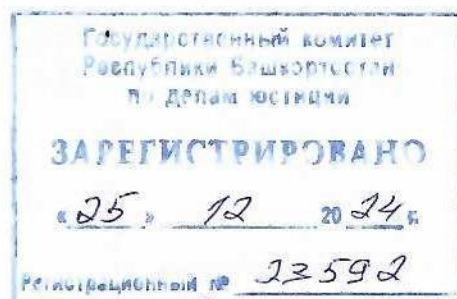 Государственный комитет
Республики Башкортостан
по делам юстиции
ЗАРЕГИСТРИРОВАНО
«25» 12 2024 г.
Регистрационный № 23592